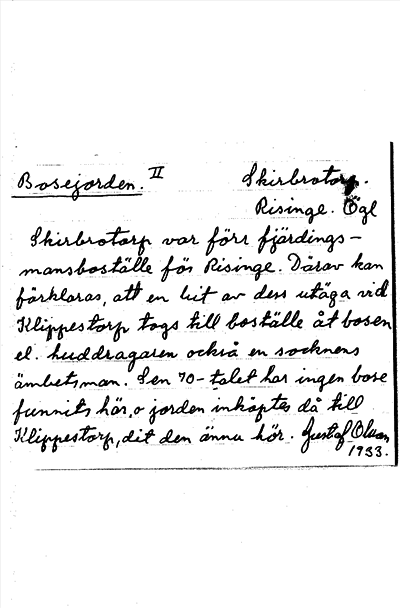 Bosejorden. II Skirbrotorp.
Risinge. Ögl
Skirbrotorp var förr fjärdings-
mansboställe för Risinge. Därav kan
förklaras, att en bit av dess utäga vid
Klippestorp togs till boställe åt bosen
el. huddragaren också en socknens
ämbetsman. Sen 70-talet har ingen bose
funnits här, o jorden inköptes då till
Klippestorp, dit den ännu hör. Gustaf Olson
1933.